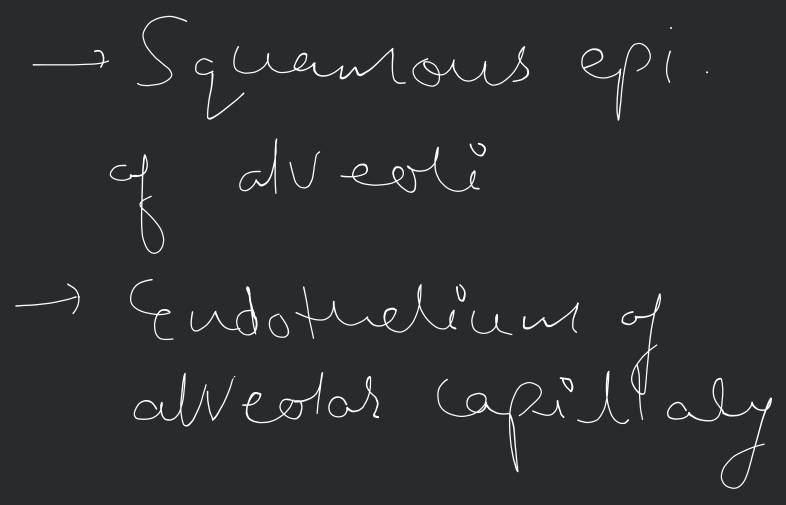 → Squamous epi.
of alveoli
→ Endothelium of
alveolar capillary